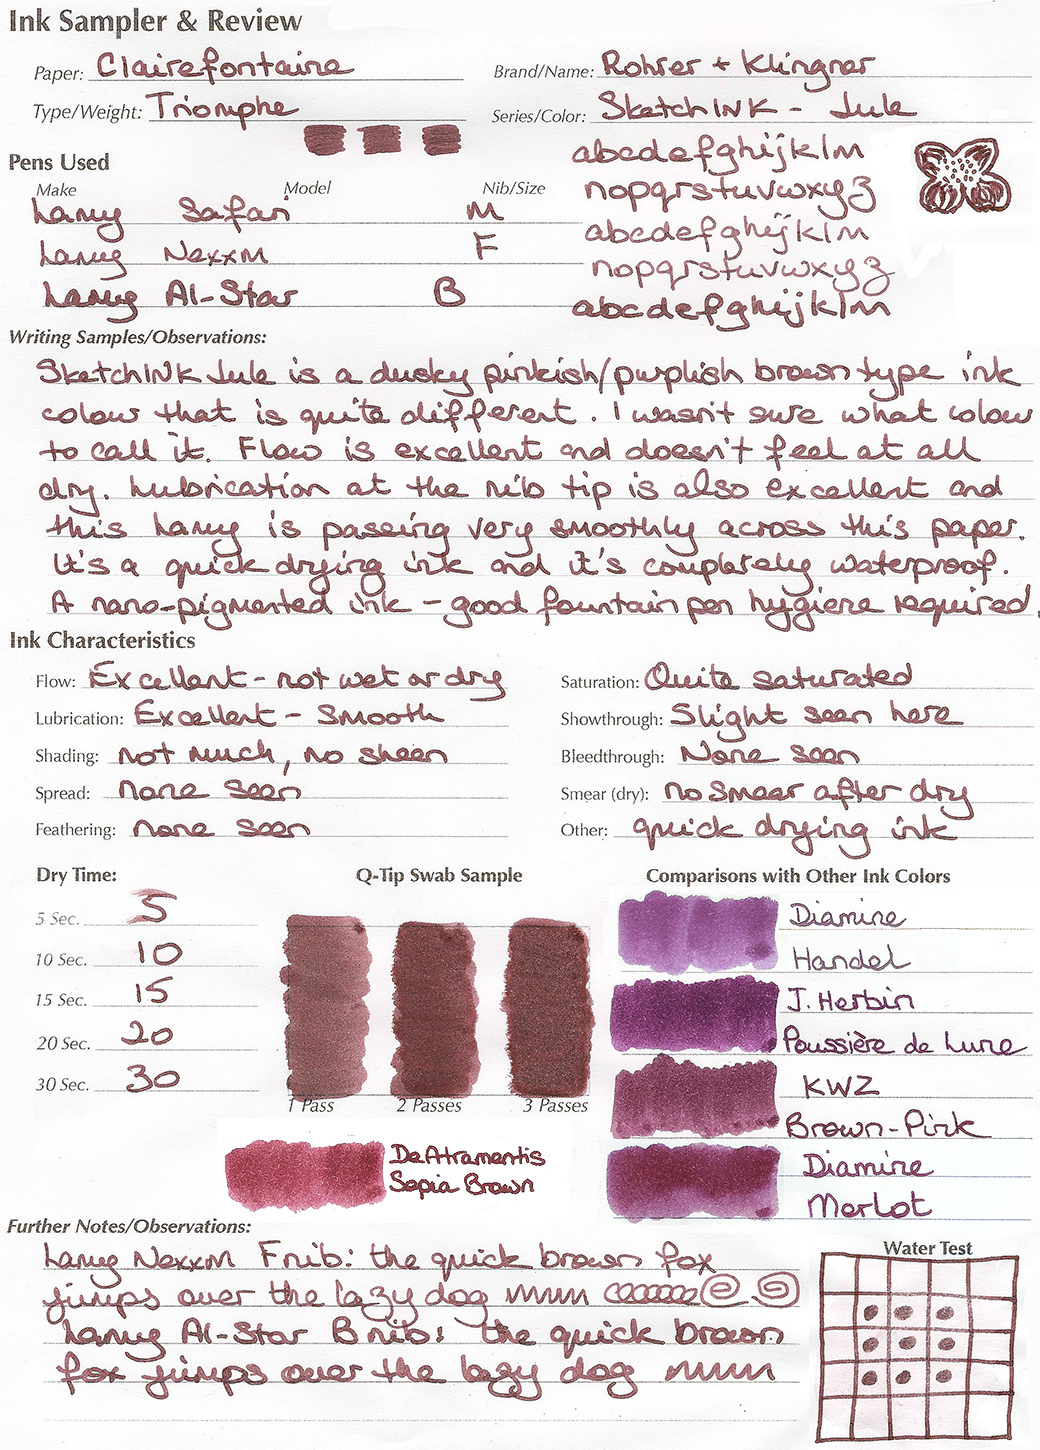 Ink Sampler & Review
Paper: Clairefontaine
Brand/Name: Rohrer + Klingner
Type/Weight: Triomphe
Series/Color: SketchINK - Jule
Pens Used
Make Model Nib/Size
Lamy Safari M
Lamy Nexxm F
Lamy Al-Star B
abcdefghijklm
nopqrstuvwxyz
abcdefghijklm
nopqrstuvwxyz
abcdefghijklm
Writing Samples/Observations:
SketchINK Jule is a dusky pinkish/purplish brown type ink
colour that is quite different. I wasn't sure what colour
to call it. Flow is excellent and doesn't feel at all
dry. Lubrication at the nib tip is also excellent and
this Lamy is passing very smoothly across this paper.
It's a quick drying ink and it's completely waterproof.
A nano-pigmented ink - good fountain pen hygiene required.
Ink Characteristics
Flow: Excellent - not wet or dry
Lubrication: Excellent - Smooth
Shading: not much, no sheen
Spread: none seen
Feathering: none seen
Saturation: Quite saturated
Showthrough: Slight seen here
Bleedthrough: None seen
Smear (dry): no smear after dry
Other: quick drying ink
Dry Time:
5 Sec. 5
10 Sec. 10
15 Sec. 15
20 Sec. 20
30 Sec. 30
Q-Tip Swab Sample
1 Pass 2 Passes 3 Passes
DeAtramentis
Sepia Brown
Comparisons with Other Ink Colors
Diamine
Handel
J. Herbin
Poussière de Lune
KWZ
Brown-Pink
Diamine
Merlot
Further Notes/Observations:
Lamy Nexxm F nib: the quick brown fox
jumps over the lazy dog
Lamy Al-Star B nib: the quick brown
fox jumps over the lazy dog
Water Test